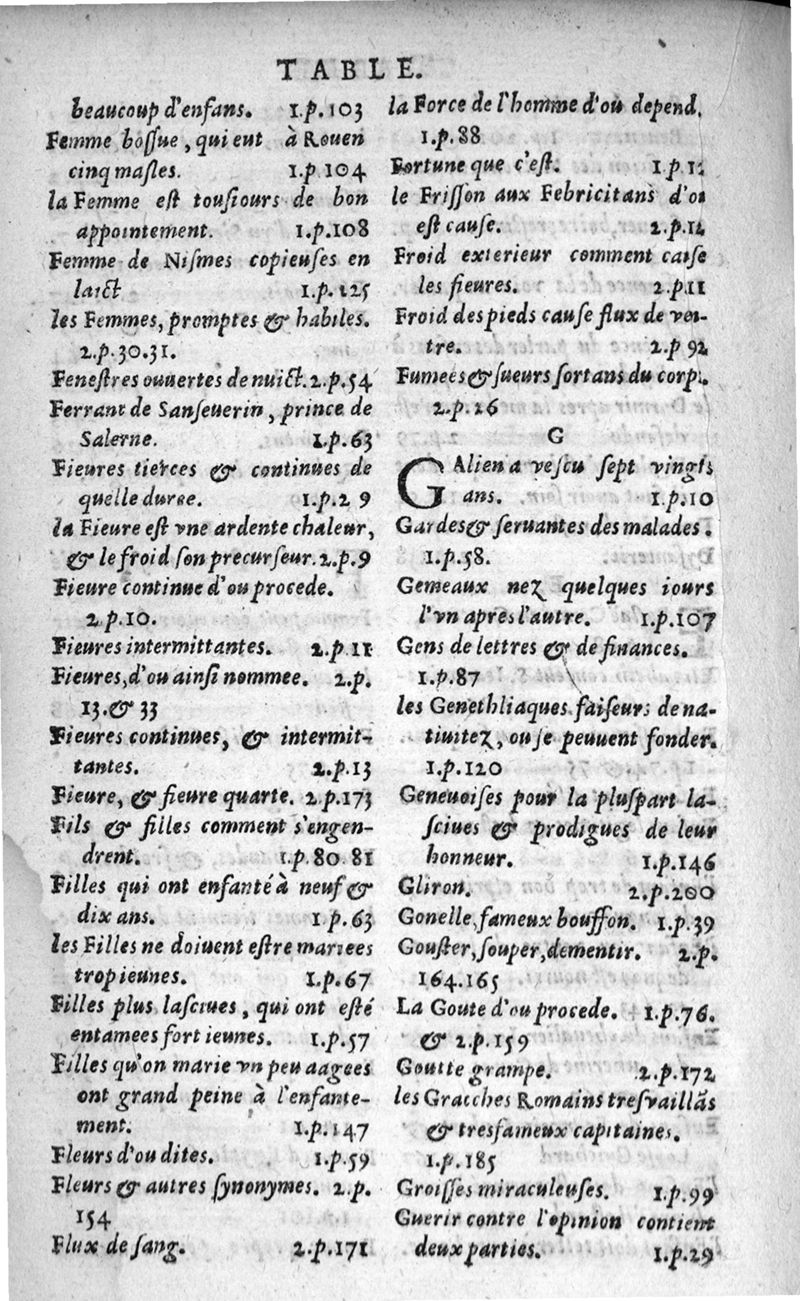 TABLE.
beaucoup d'enfans. 1.p.103
Femme boſſue, qui eut à Rouen
cinq maſles. 1.p 104
la Femme eſt touſiours de bon
appointement. 1.p.108
Femme de Niſmes copieuſes en
laict 1.p.125
les Femmes, promptes & habiles.
2.p.30.31.
Feneſtres ouuertes de nuict. 2.p.54
Ferrant de Sanſeuerin, prince de
Salerne. 1.p.63
Fieures tierces & continues de
quelle duree. 1.p.2 9
la Fieure eſt vne ardente chaleur,
& le froid ſon precurſeur. 2.p.9
Fieure continue d'ou procede.
2.p.10.
Fieures intermittantes. 2.p.11
Fieures, d'ou ainſi nommee. 2.p.
13.& 33
Fieures continues, & intermit-
tantes. 2.p.13
Fieure, & fieure quarte. 2.p.173
Fils & filles comment s'engen-
drent. 1.p.80.81
Filles qui ont enfanté à neuf &
dix ans. 1.p.63
les Filles ne doiuent eſtre mariees
trop ieunes. 1.p.67
Filles plus laſciues, qui ont eſté
entamees fort ieunes. 1.p.57
Filles qu'on marie vn peu aagees
ont grand peine à l'enfante-
ment. 1.p.147
Fleurs d'ou dites. 1.p.59
Fleurs & autres ſynonymes. 2.p.
154
Flux de ſang. 2.p.171
la Force de l'homme d'où depend.
1.p.88
Fortune que c'eſt. 1.p
le Friſſon aux Febricitans
eſt cauſe. 2.p.
Froid exterieur comment cauſe
les fieures. 2.p.11
Froid des pieds cauſe flux de
tre. 2.p 92
Fumees & ſueurs ſortans du
2.p.26
G
GAlien a veſcu ſept vingts
ans. 1.p.10
Gardes & ſeruantes des malades.
1.p.58.
Gemeaux nez quelques iours
l'vn apres l'autre. 1.p.107
Gens de lettres & de finances.
1.p.87
les Genethliaques faiſeurs de na-
tiuitez, ou ſe peuuent fonder.
1.p.120
Geneuoiſes pour la pluſpart la-
ſciues & prodigues de leur
honneur. 1.p.146
Gliron. 2.p.200
Gonelle, fameux bouffon. 1.p.39
Gouſter, ſouper, dementir. 2.p.
164.165
La Goute d'ou procede. 1.p.76.
& 2.p.159
Goutte grampe. 2.p.172
les Gracches Romains treſvaillãs
& treſfameux capitaines.
1.p.185
Groiſſes miraculeuſes. 1.p.99
Guerir contre l'opinion contient
deux parties. 1.p.29